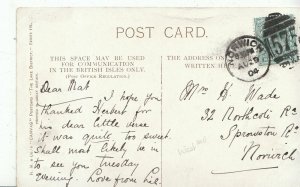 POST CARD.
THIS SPACE MAY BE USED
FOR COMMUNICATION
IN THE BRITISH ISLES ONLY.
(POST OFFICE REGULATION.)
THE ADDRESS ON
WRITTEN H
NORWICH
04
575
Dear Mat
I hope you
thanked Herbert for
his dear little verse
it was quite too sweet.
Shall most likely be in
to see you Tuesday
evening. Love from
Mrs H Wade
32 Northcote Rd
Sprowston Rd
Norwich